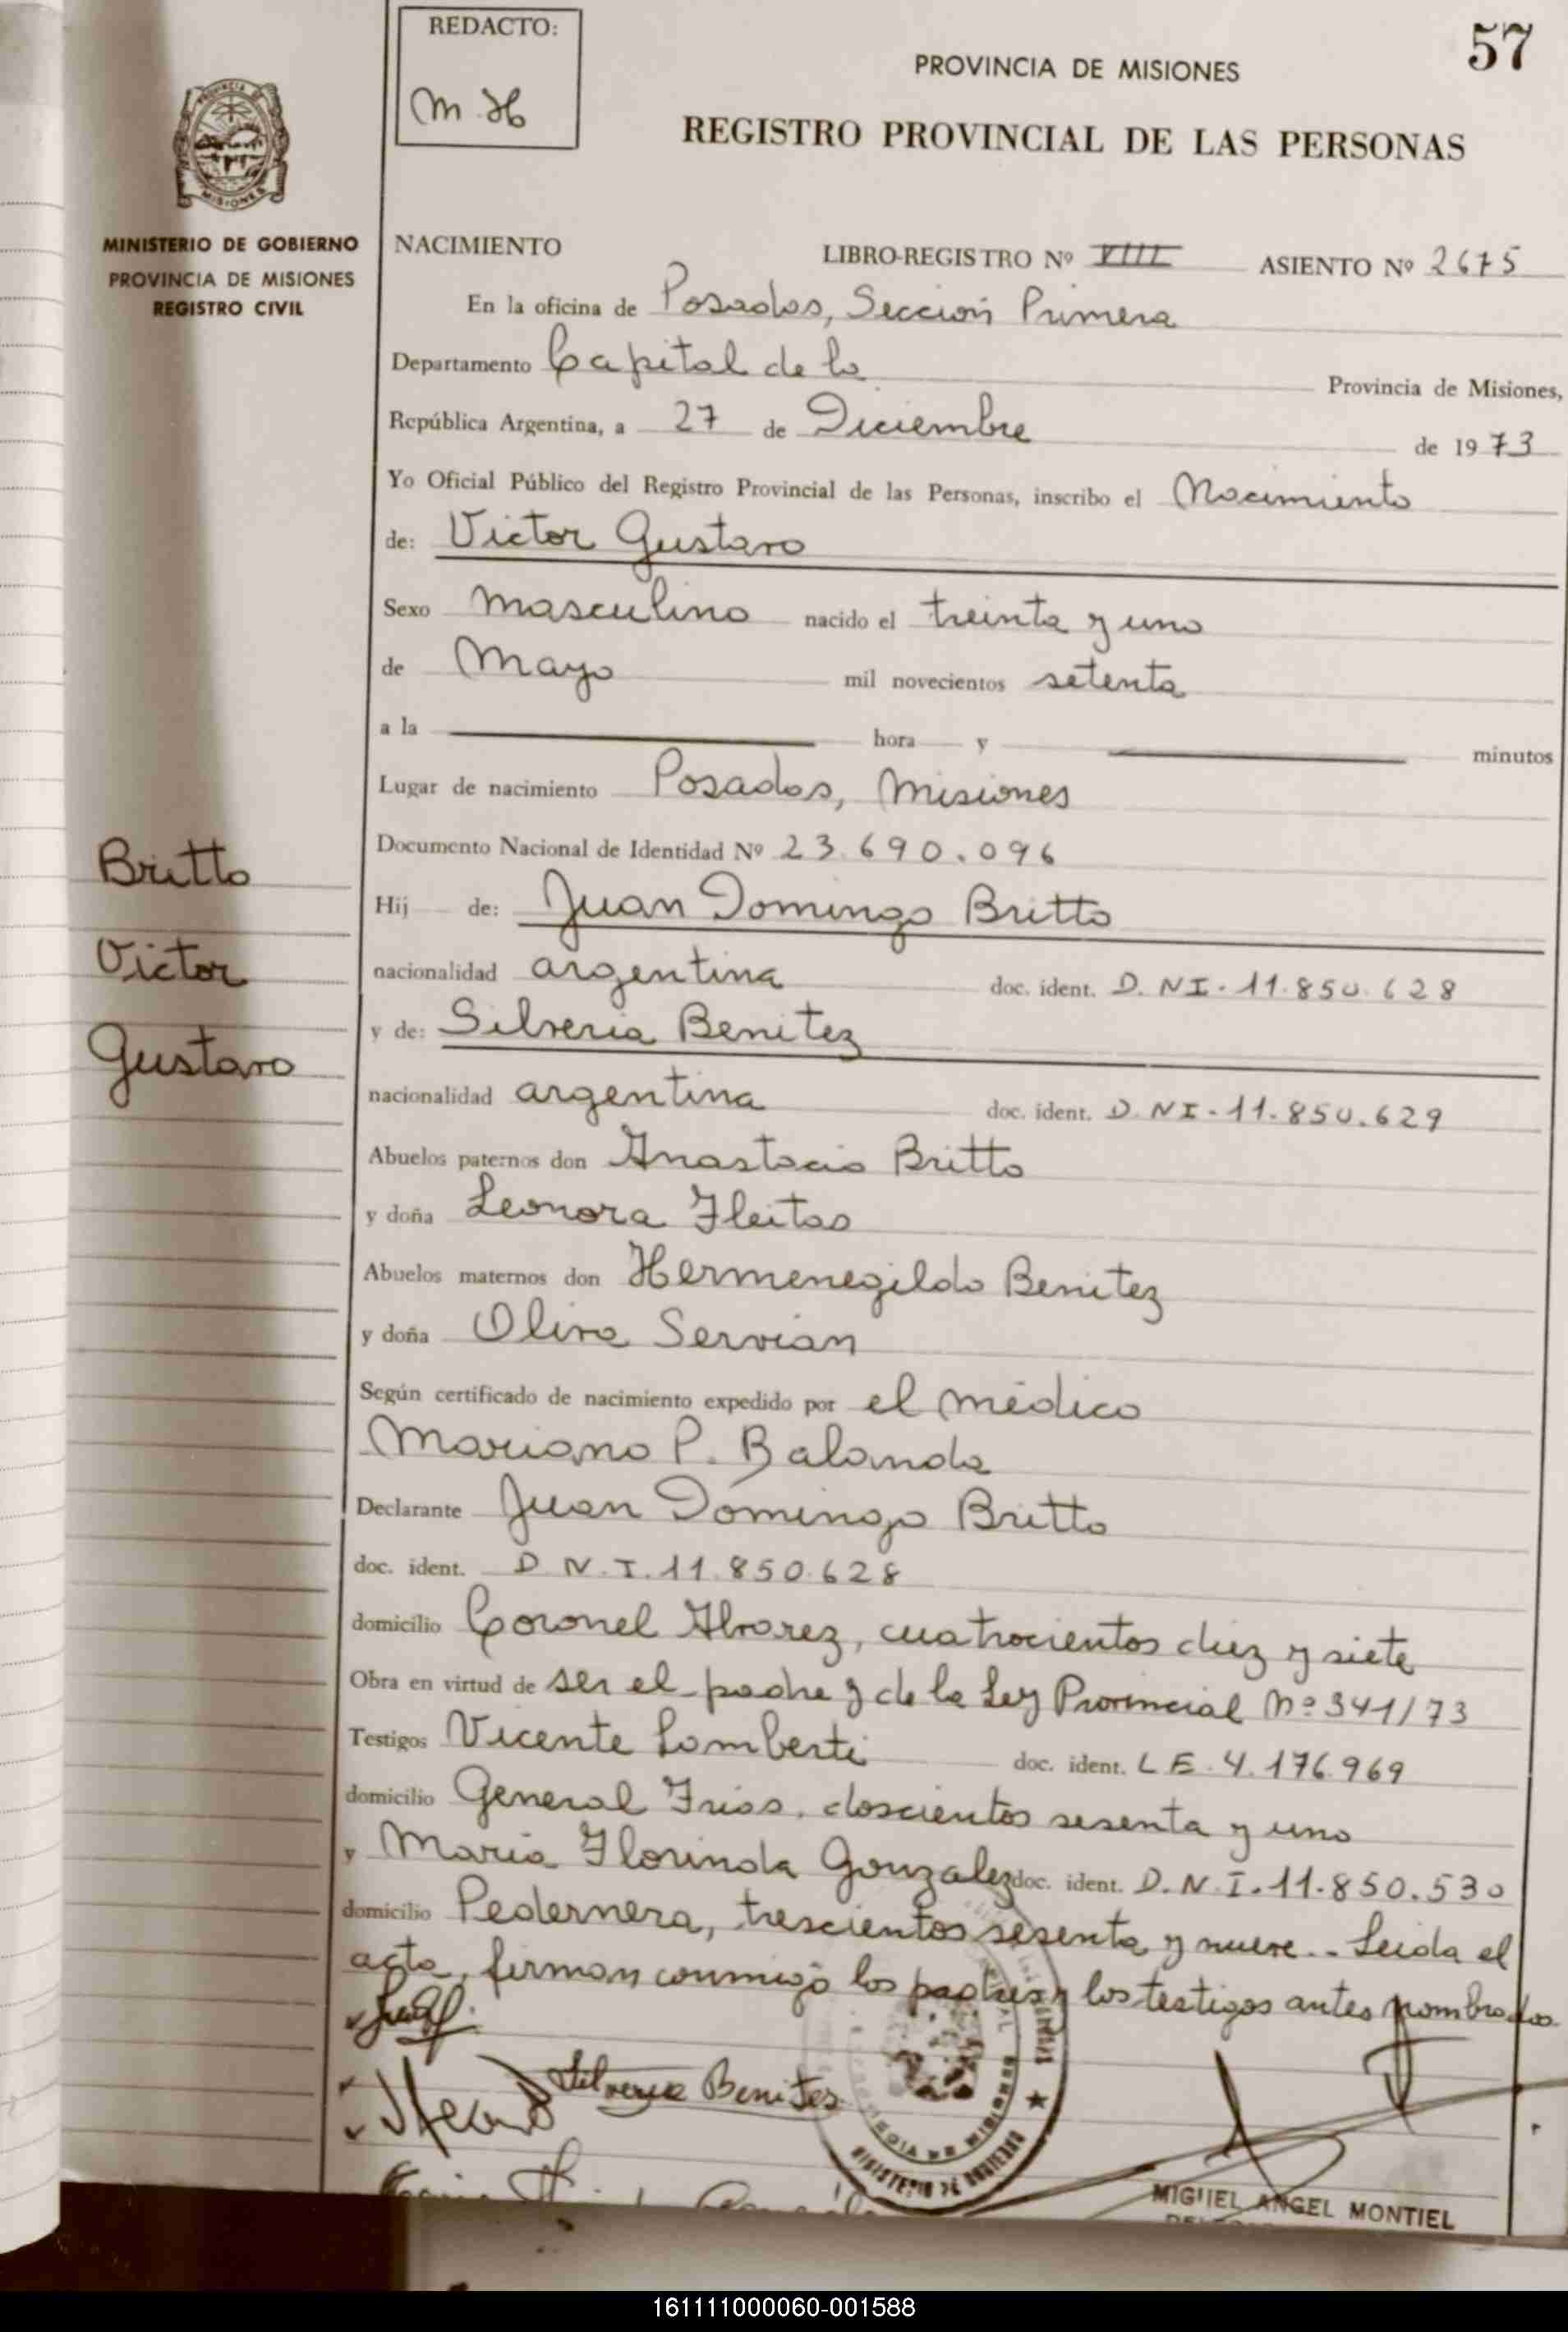 REDACTO:
M.H
57
PROVINCIA DE MISIONES
REGISTRO PROVINCIAL DE LAS PERSONAS
MISIONES
MINISTERIO DE GOBIERNO
PROVINCIA DE MISIONES
REGISTRO CIVIL
NACIMIENTO LIBRO-REGISTRO Nº VIII ASIENTO Nº 2675
En la oficina de Posadas, Sección Primera
Departamento Capital de la Provincia de Misiones,
República Argentina, a 27 de Diciembre de 1973
Yo Oficial Público del Registro Provincial de las Personas, inscribo el Nacimiento
de: Victor Gustavo
Sexo masculino nacido el treinta y uno
de Mayo mil novecientos setenta
a la hora y minutos
Lugar de nacimiento Posadas, Misiones
Documento Nacional de Identidad Nº 23.690.096
Britto
Victor
Gustavo
Hij de: Juan Domingo Britto
nacionalidad argentina doc. ident. D.NI.11.850.628
y de: Silveria Benitez
nacionalidad argentina doc. ident. D.NI.11.850.629
Abuelos paternos don Anastacio Britto
y doña Leonora Fleitas
Abuelos maternos don Hermenegildo Benitez
y doña Oliva Servian
Según certificado de nacimiento expedido por el médico
Mariano P. Balanda
Declarante Juan Domingo Britto
doc. ident. D.N.I.11.850.628
domicilio Coronel Alvarez, cuatrocientos diez y siete
Obra en virtud de ser el padre y de la Ley Provincial Nº 341/73
Testigos Vicente Lomberti doc. ident. LE.4.176.969
domicilio General Frias, doscientos sesenta y uno
y Maria Florinda Gonzalez doc. ident. D.N.I.11.850.530
domicilio Pedernera, trescientos sesenta y nueve.- Leida el
acta, firman conmigo los padres y los testigos antes nombrados
Silveria Benites
MINISTERIO DE GOBIERNO
MIGUEL ANGEL MONTIEL
161111000060-001588